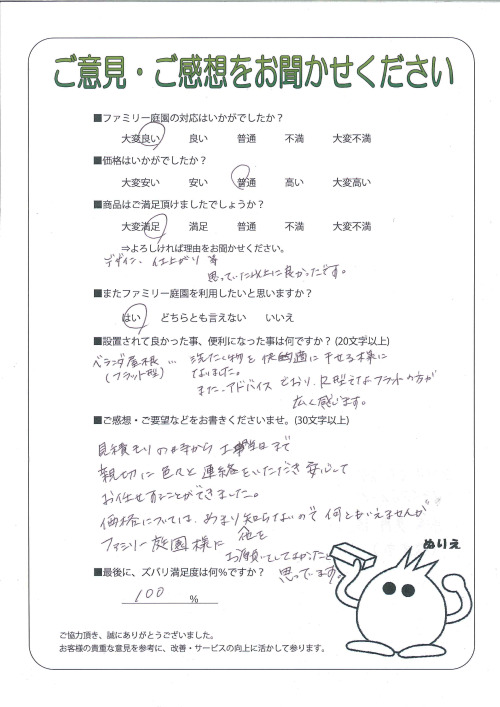 ご意見・ご感想をお聞かせください
■ファミリー庭園の対応はいかがでしたか？
大変良い 良い 普通 不満 大変不満
■価格はいかがでしたか？
大変安い 安い 普通 高い 大変高い
■商品はご満足頂けましたでしょうか？
大変満足 満足 普通 不満 大変不満
⇒よろしければ理由をお聞かせください。
デザイン、仕上がり等
思っていた以上に良かったです。
■またファミリー庭園を利用したいと思いますか？
はい どちらとも言えない いいえ
■設置されて良かった事、便利になった事は何ですか？(20文字以上)
ベランダ屋根… 洗たく物を快適に干せる様に
(フラット型) なりました。
また、アドバイスどおり、R型よりフラットの方が
広く感じます。
■ご感想・ご要望などをお書きくださいませ。(30文字以上)
見積もりの時から工事当日まで
親切に色々と連絡をいただき安心して
お任せすることができました。
価格については、あまり知らないので何ともいえませんが
ファミリー庭園様に
お願いしてよかったと
思っています。
■最後に、ズバリ満足度は何%ですか？
100 %
ぬりえ
ご協力頂き、誠にありがとうございました。
お客様の貴重な意見を参考に、改善・サービスの向上に活かして参ります。